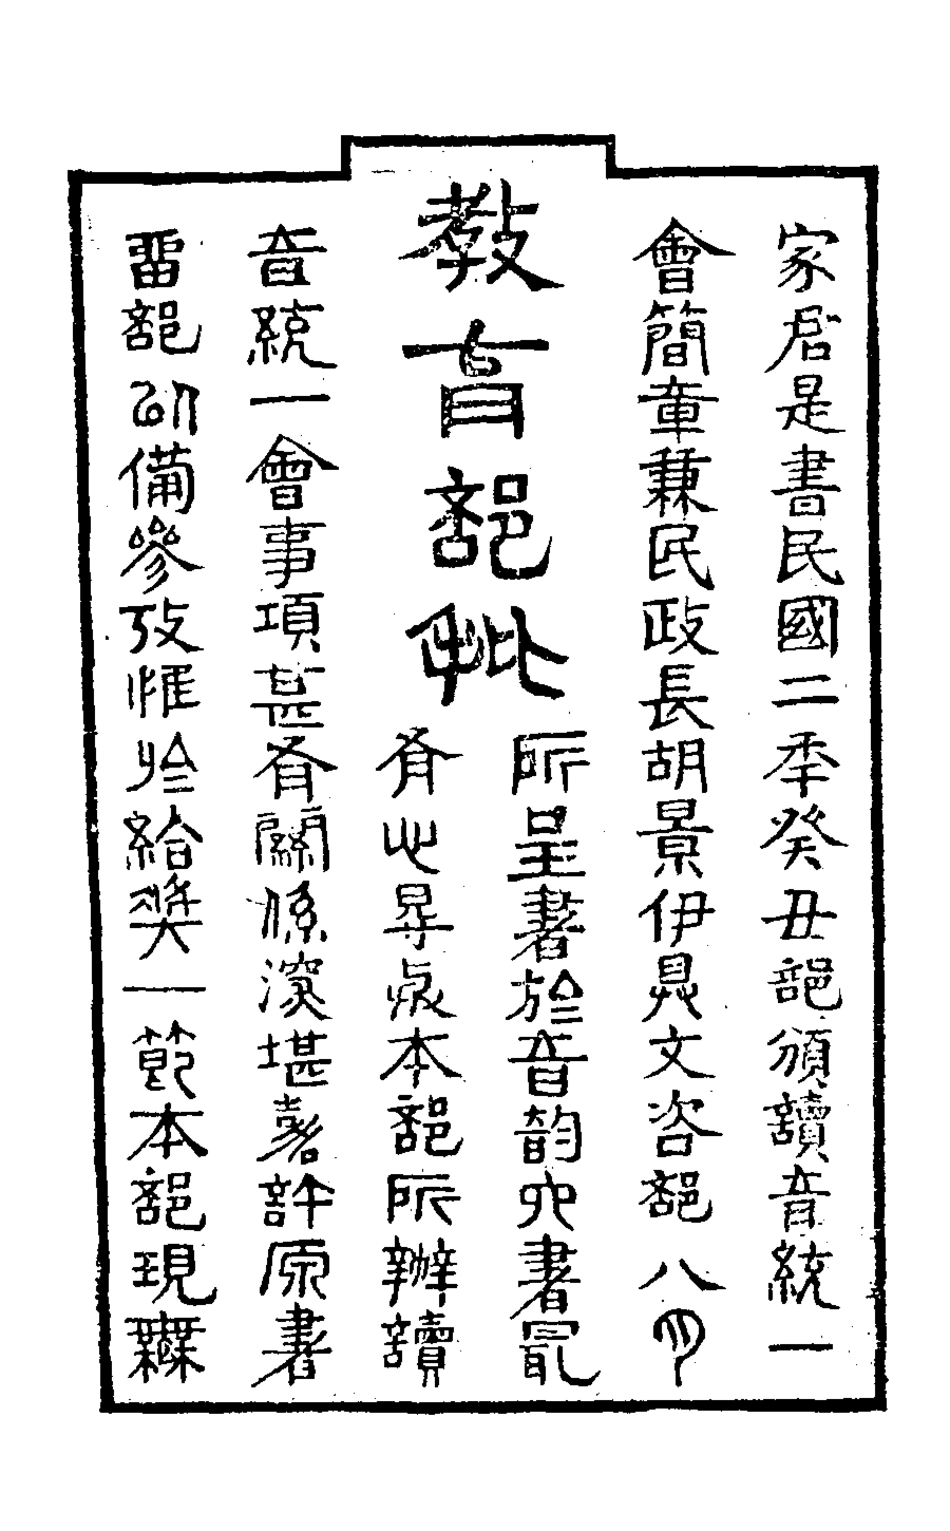 家君是書民國二秊癸丑部頒讀音統一
會簡章兼民政長胡景伊具文咨部 八月
教育部批
所呈書於音韵六書冣
有心㝵處本部所辦讀
音統一會事項甚有關係深堪嘉許原書
畱部以備參攷惟於給獎一節本部現無